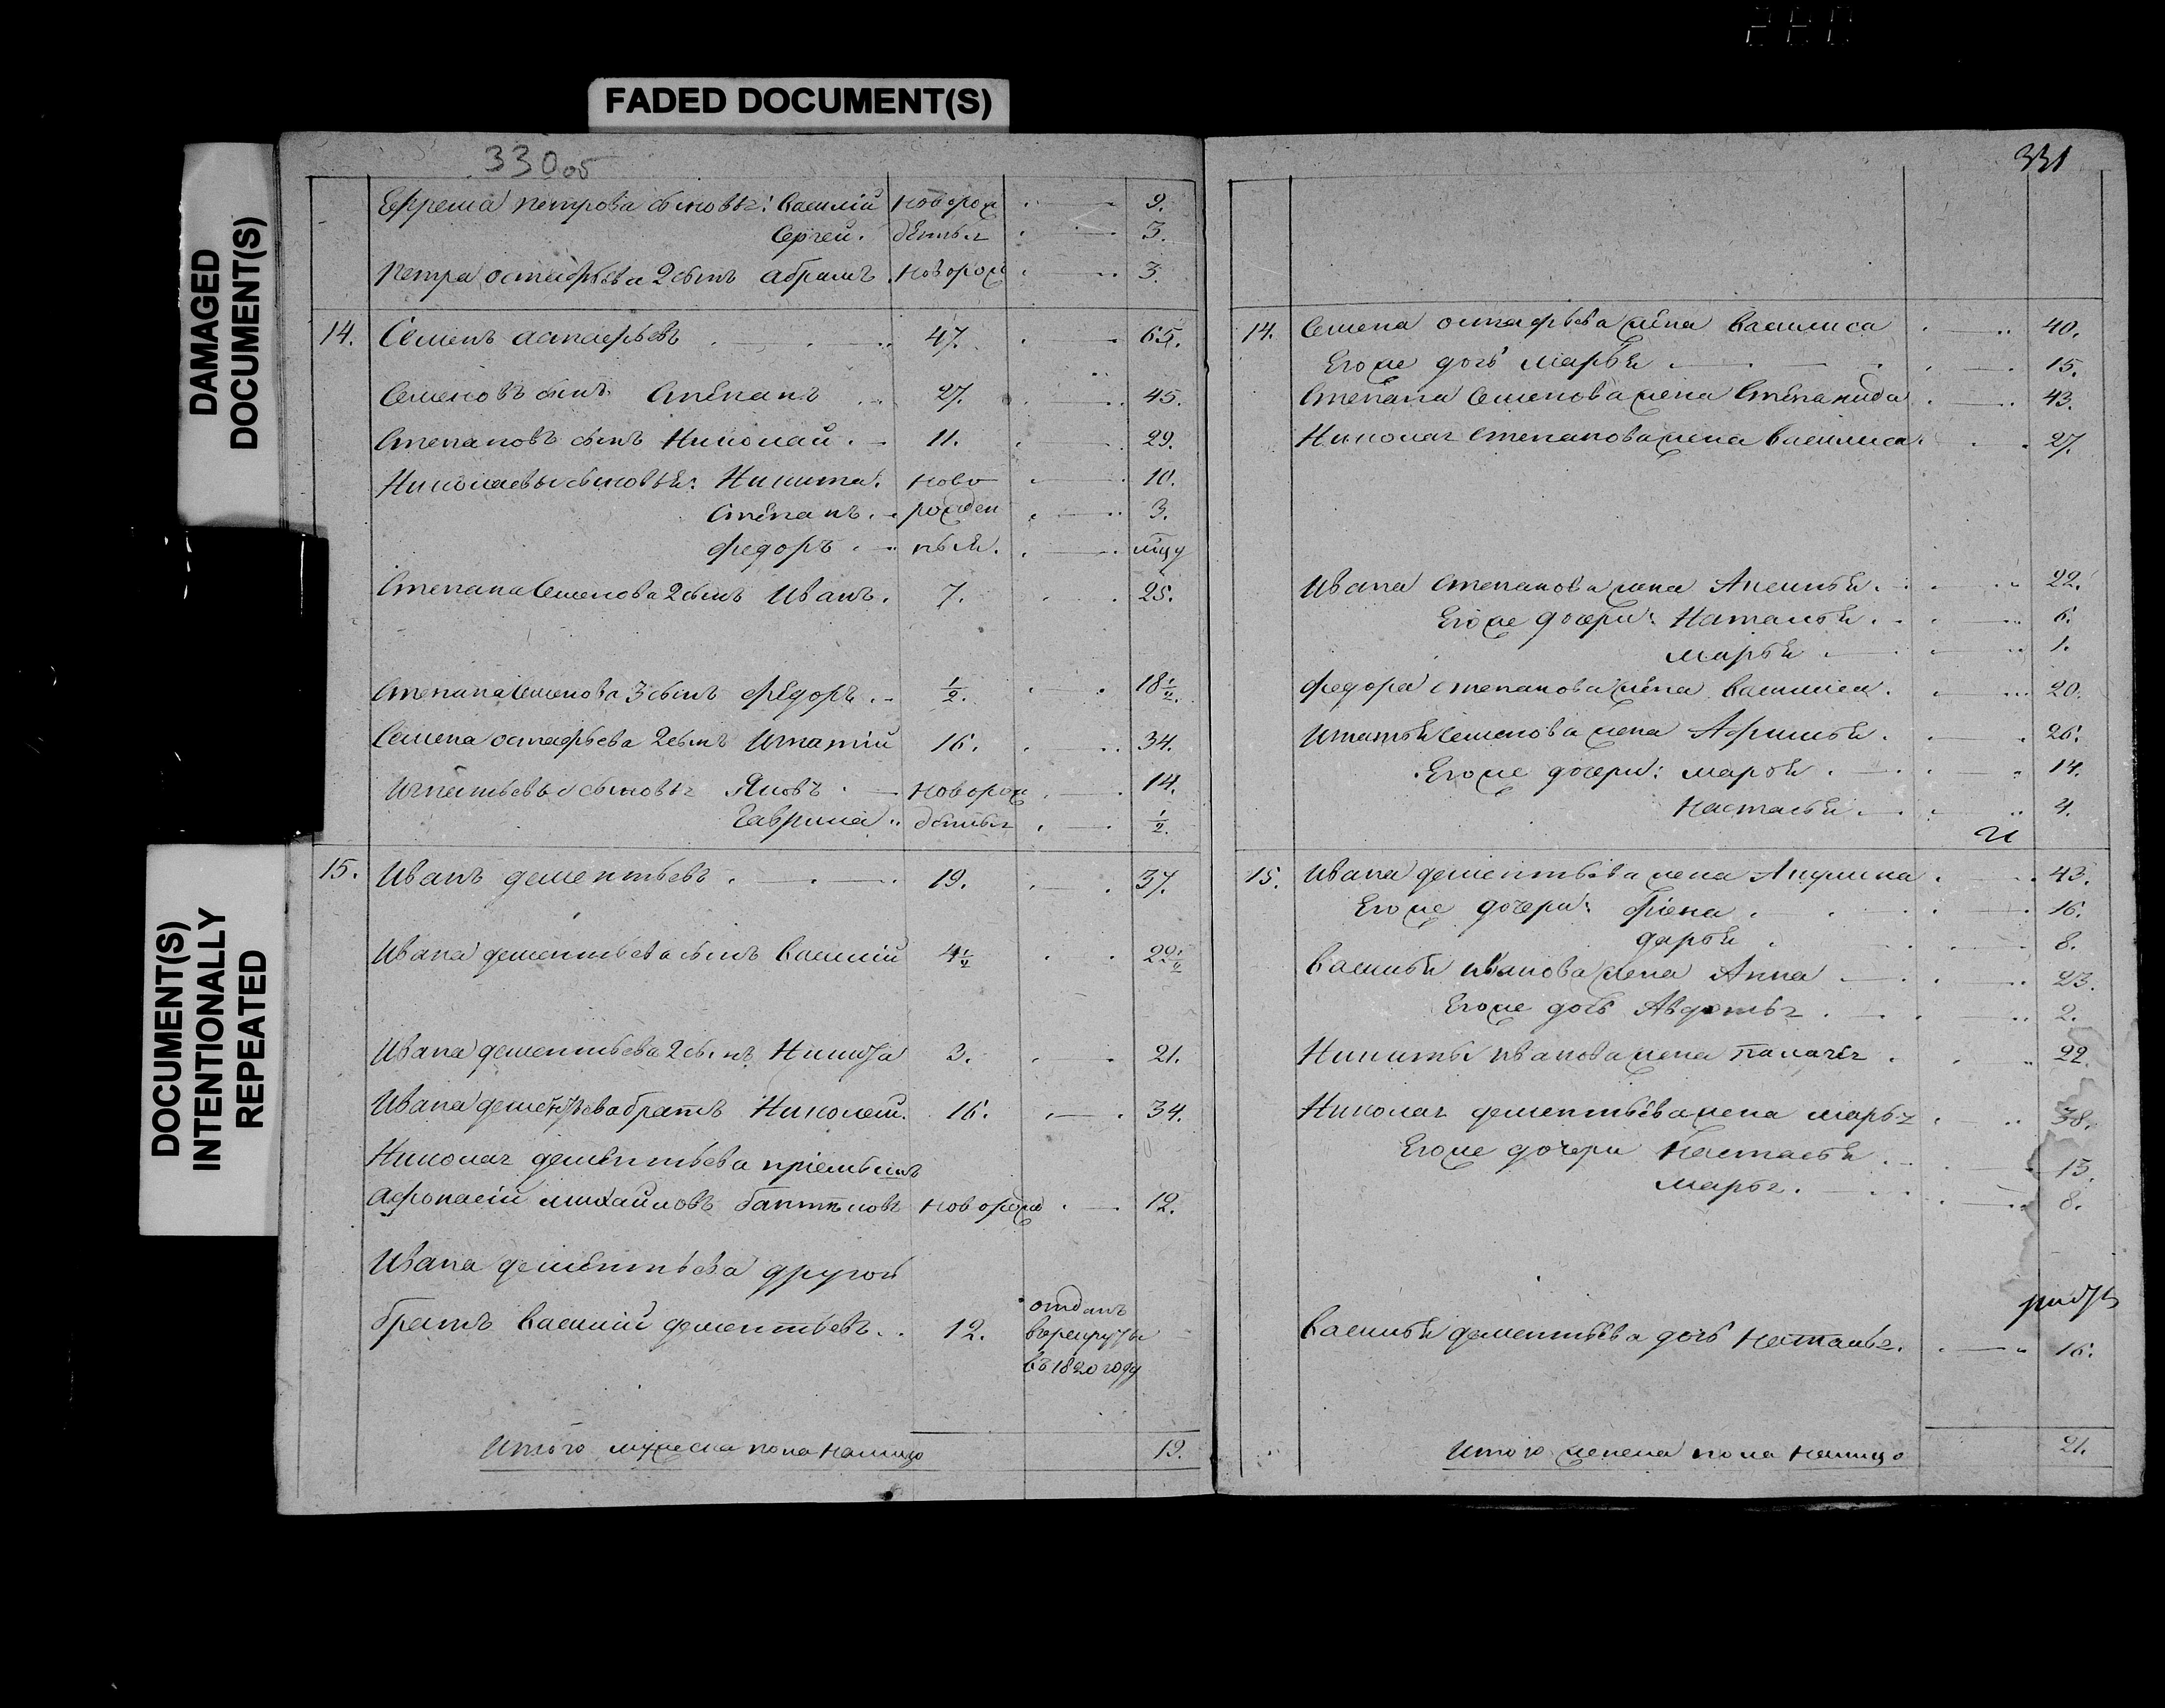 FADED DOCUMENT(S)
DAMAGED
DOCUMENT(S)
DOCUMENT(S)
INTENTIONALLY
REPEATED
330об
Ефрема Петрова сыновья: Василій новорож 9.
Сергей. денныя 3.
Петра Остафьева 2 сынъ Абрамъ новорож 3.
14. Семенъ Астафьевъ 47. 65.
Семеновъ сынъ Степанъ 27. 45.
Степановъ сынъ Николай 11. 29.
Николаевы сыновья: Никита. ново 10.
Степанъ. рожден 3.
Федоръ ныя. мцу
Степана Семенова 2 сынъ Иванъ. 7. 25.
Степана Семенова 3 сынъ Федоръ 1/2. 18 1/2.
Семена Остафьева 2 сынъ Игнатій 16. 34.
Игнатьевы сыновья Яковъ новорож 14.
Гаврила денныя 1/2.
15. Иванъ Дементьевъ 19. 37.
Ивана Дементьева сынъ Василій 4 1/2 22 1/2
Ивана Дементьева 2 сынъ Никита 3. 21.
Ивана Дементьева братъ Николай. 16. 34.
Николая Дементьева пріемышъ
Афонасій Михайловъ новорожд 12.
Ивана Дементьева другой
братъ Василій Дементьевъ 12. отданъ
в рекруты
въ 1820 году
Итого мужеска пола налицо 19.
331
14. Семена Остафьева жена Василиса 40.
Его же дочь Марья 15.
Степана Семенова жена Степанида 43.
Николая Степанова жена Василиса 27.
Ивана Степанова жена Аксинья 22.
Его же дочери: Наталья 6.
Марья 1.
Федора Степанова жена Василиса 20.
Игнатья Семенова жена Афимья 26.
Его же дочери: Марья 14.
Настасья 4.
15. Ивана Дементьева жена Акулина 43.
Его же дочери: Фіона 16.
Дарья 8.
Василья Иванова жена Анна 23.
Его же дочь Авдотья 2.
Никиты Иванова жена Палагея 22.
Николая Дементьева жена Марья 38.
Его же дочери Настасья 15.
Марья 8.
Василья Дементьева дочь Наталья. 16.
Итого женска пола налицо 21.